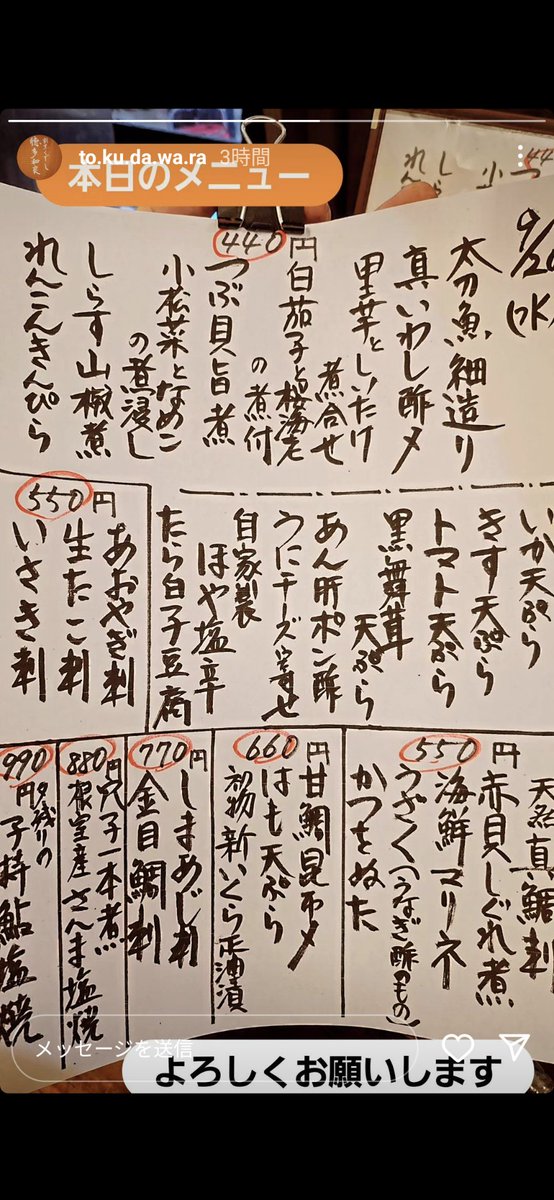 to.ku.da.wa.ra 3時間
本日のメニュー
9/20
(水)
太刀魚細造り
真いわし酢〆
里芋としいたけ
煮合せ
440円
白茄子と桜海老
の煮付
つぶ貝旨煮
小松菜となめこ
の煮浸し
しらす山椒煮
れんこんきんぴら
いか天ぷら
きす天ぷら
トマト天ぷら
黒舞茸
天ぷら
あん肝ポン酢
うにチーズ寄せ
自家製
ほや塩辛
たら白子豆腐
550円
あおやぎ刺
生たこ刺
いさき刺
550円
天然真鯛刺
赤貝しぐれ煮
海鮮マリネ
うざく(うなぎ酢のもの)
かつをぬた
660円
甘鯛昆布〆
はも天ぷら
初物新いくら正油漬
770円
しまあじ刺
金目鯛刺
880円
穴子一本煮
根室産さんま塩焼
990円
名残りの
子持鮎塩焼
メッセージを送信
よろしくお願いします